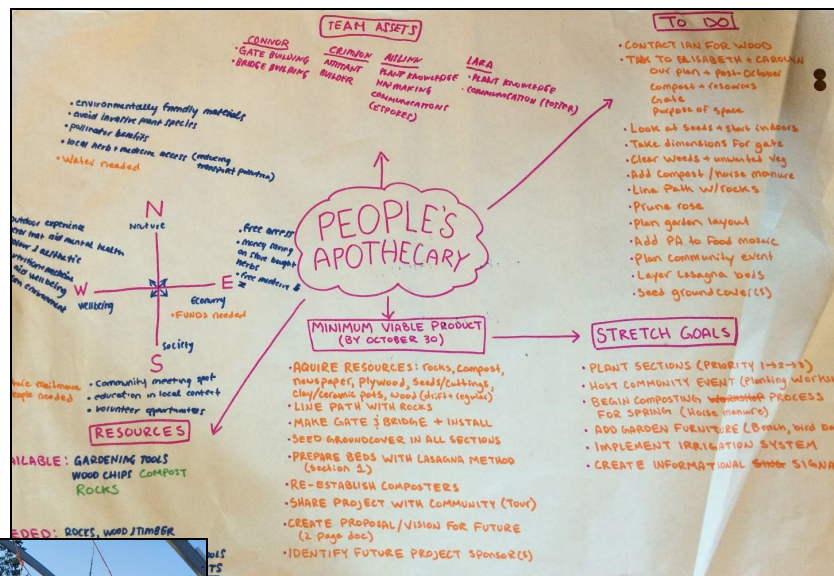 TEAM ASSETS
CONNOR
• GATE BUILDING
• BRIDGE BUILDING
CRIMSON
BUILDER
AISLINN
PLANT KNOWLEDGE
MAPMAKING
COMMUNICATIONS
LARA
• PLANT KNOWLEDGE
• COMMUNICATION (POSTER)
TO DO
• CONTACT IAN FOR WOOD
• TALK TO ELISABETH + CAROLYN
our plan + post-October
compost + resources
Gate
Purpose of space
• Look at seeds + start indoors
• Take dimensions for gate
• Clear weeds + unwanted veg
• Add compost / horse manure
• Line Path w/rocks
• Prune rose
• Plan garden layout
• Add PA to Food mosaic
• Plan community event
• Layer lasagna beds
• Seed groundcover(s)
• environmentally friendly materials
• avoid invasive plant species
• pollinator benefits
• local herb + medicine access (reducing
transport pollution)
• Water needed
N
Nature
outdoor experience
that aid mental health
aesthetic
aid wellbeing
environment
W
Wellbeing
E
Economy
• FUNDS needed
• free access
• money saving
on store bought
herbs
• free medicine
Society
S
• Community meeting spot
• education in local content
• volunteer opportunities
people needed
PEOPLE'S
APOTHECARY
MINIMUM VIABLE PRODUCT
(BY OCTOBER 30)
• AQUIRE RESOURCES: rocks, compost,
newspaper, Plywood, Seeds/cuttings,
clay/ceramic pots, wood (drift + regular)
• LINE PATH WITH ROCKS
• MAKE GATE & BRIDGE + INSTALL
• SEED GROUNDCOVER IN ALL SECTIONS
• PREPARE BEDS WITH LASAGNA METHOD
(section 1)
• RE-ESTABLISH COMPOSTERS
• SHARE PROJECT WITH COMMUNITY (Tour)
• CREATE PROPOSAL/VISION FOR FUTURE
(2 page doc)
• IDENTIFY FUTURE PROJECT SPONSOR(S)
STRETCH GOALS
• PLANT SECTIONS (PRIORITY 1→2→3)
• HOST COMMUNITY EVENT (Planting Worksh
• BEGIN COMPOSTING PROCESS
FOR SPRING (Horse manure)
• ADD GARDEN FURNITURE (Bench, bird ba
• IMPLEMENT IRRIGATION SYSTEM
• CREATE INFORMATIONAL SIGNA
RESOURCES
AILABLE: GARDENING TOOLS
WOOD CHIPS COMPOST
ROCKS
EDED: ROCKS, WOOD/TIMBER